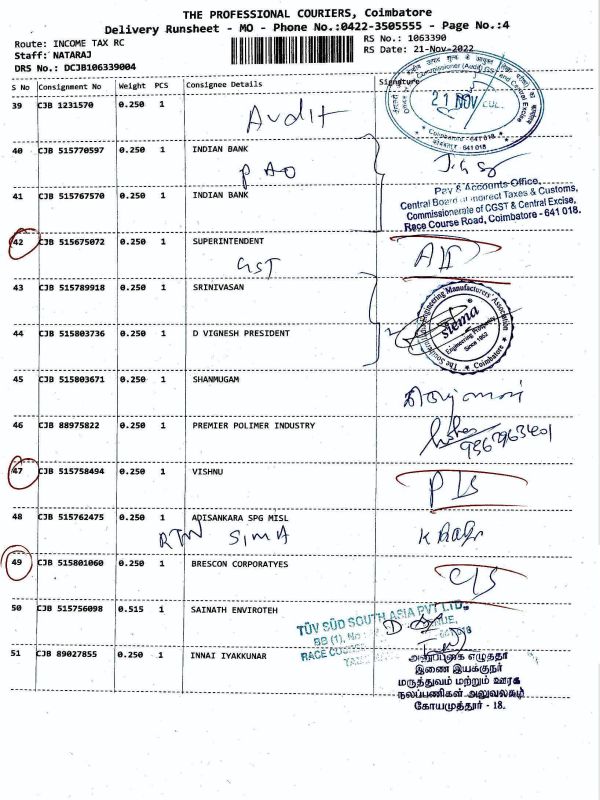 THE PROFESSIONAL COURIERS, Coimbatore
Delivery Runsheet - MO - Phone No.:0422-3505555 - Page No.:4
Route: INCOME TAX RC
RS No.: 1063390
Staff: NATARAJ
RS Date: 21-Nov-2022
DRS No.: DCJB106339004
S No Consignment No Weight PCS Consignee Details Signature
39 CJB 1231570 0.250 1
Audit
21 NOV
Coimbatore - 641 018
40 CJB 515770597 0.250 1 INDIAN BANK
PAO
Pay & Accounts Office,
Central Board of Indirect Taxes & Customs,
Commissionerate of CGST & Central Excise,
Race Course Road, Coimbatore - 641 018.
41 CJB 515767570 0.250 1 INDIAN BANK
42 CJB 515675072 0.250 1 SUPERINTENDENT
GST
43 CJB 515789918 0.250 1 SRINIVASAN
The Southern India Engineering Manufacturers' Association
siema
Engineering Prosperity
Since 1952
Coimbatore
44 CJB 515803736 0.250 1 D VIGNESH PRESIDENT
45 CJB 515803671 0.250 1 SHANMUGAM
46 CJB 88975822 0.250 1 PREMIER POLIMER INDUSTRY
47 CJB 515758494 0.250 1 VISHNU
48 CJB 515762475 0.250 1 ADISANKARA SPG MISL
RTN SIMA
49 CJB 515801060 0.250 1 BRESCON CORPORATYES
50 CJB 515756098 0.515 1 SAINATH ENVIROTEH
TÜV SÜD SOUTH ASIA PVT LTD.
51 CJB 89027855 0.250 1 INNAI IYAKKUNAR
இணை இயக்குநர்
மருத்துவம் மற்றும் ஊரக
நலப்பணிகள் அலுவலகம்
கோயமுத்தூர் - 18.